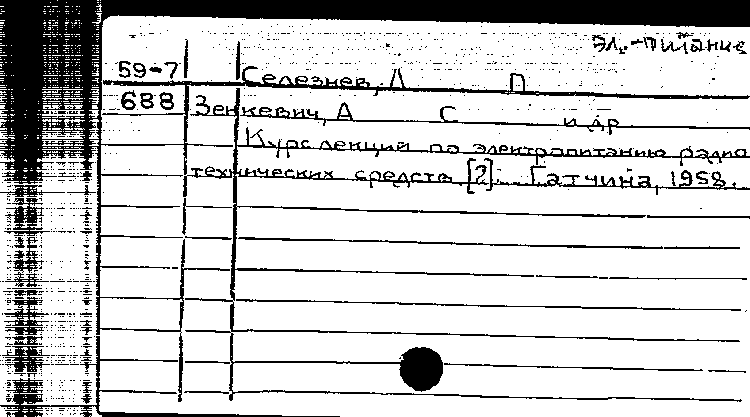 Эл.-питание
59-7 Селезнев, Л П
688 Зенкевич, А С и др
Курс лекций по электропитанию радио
технических средств [2]. Гатчина, 1958.